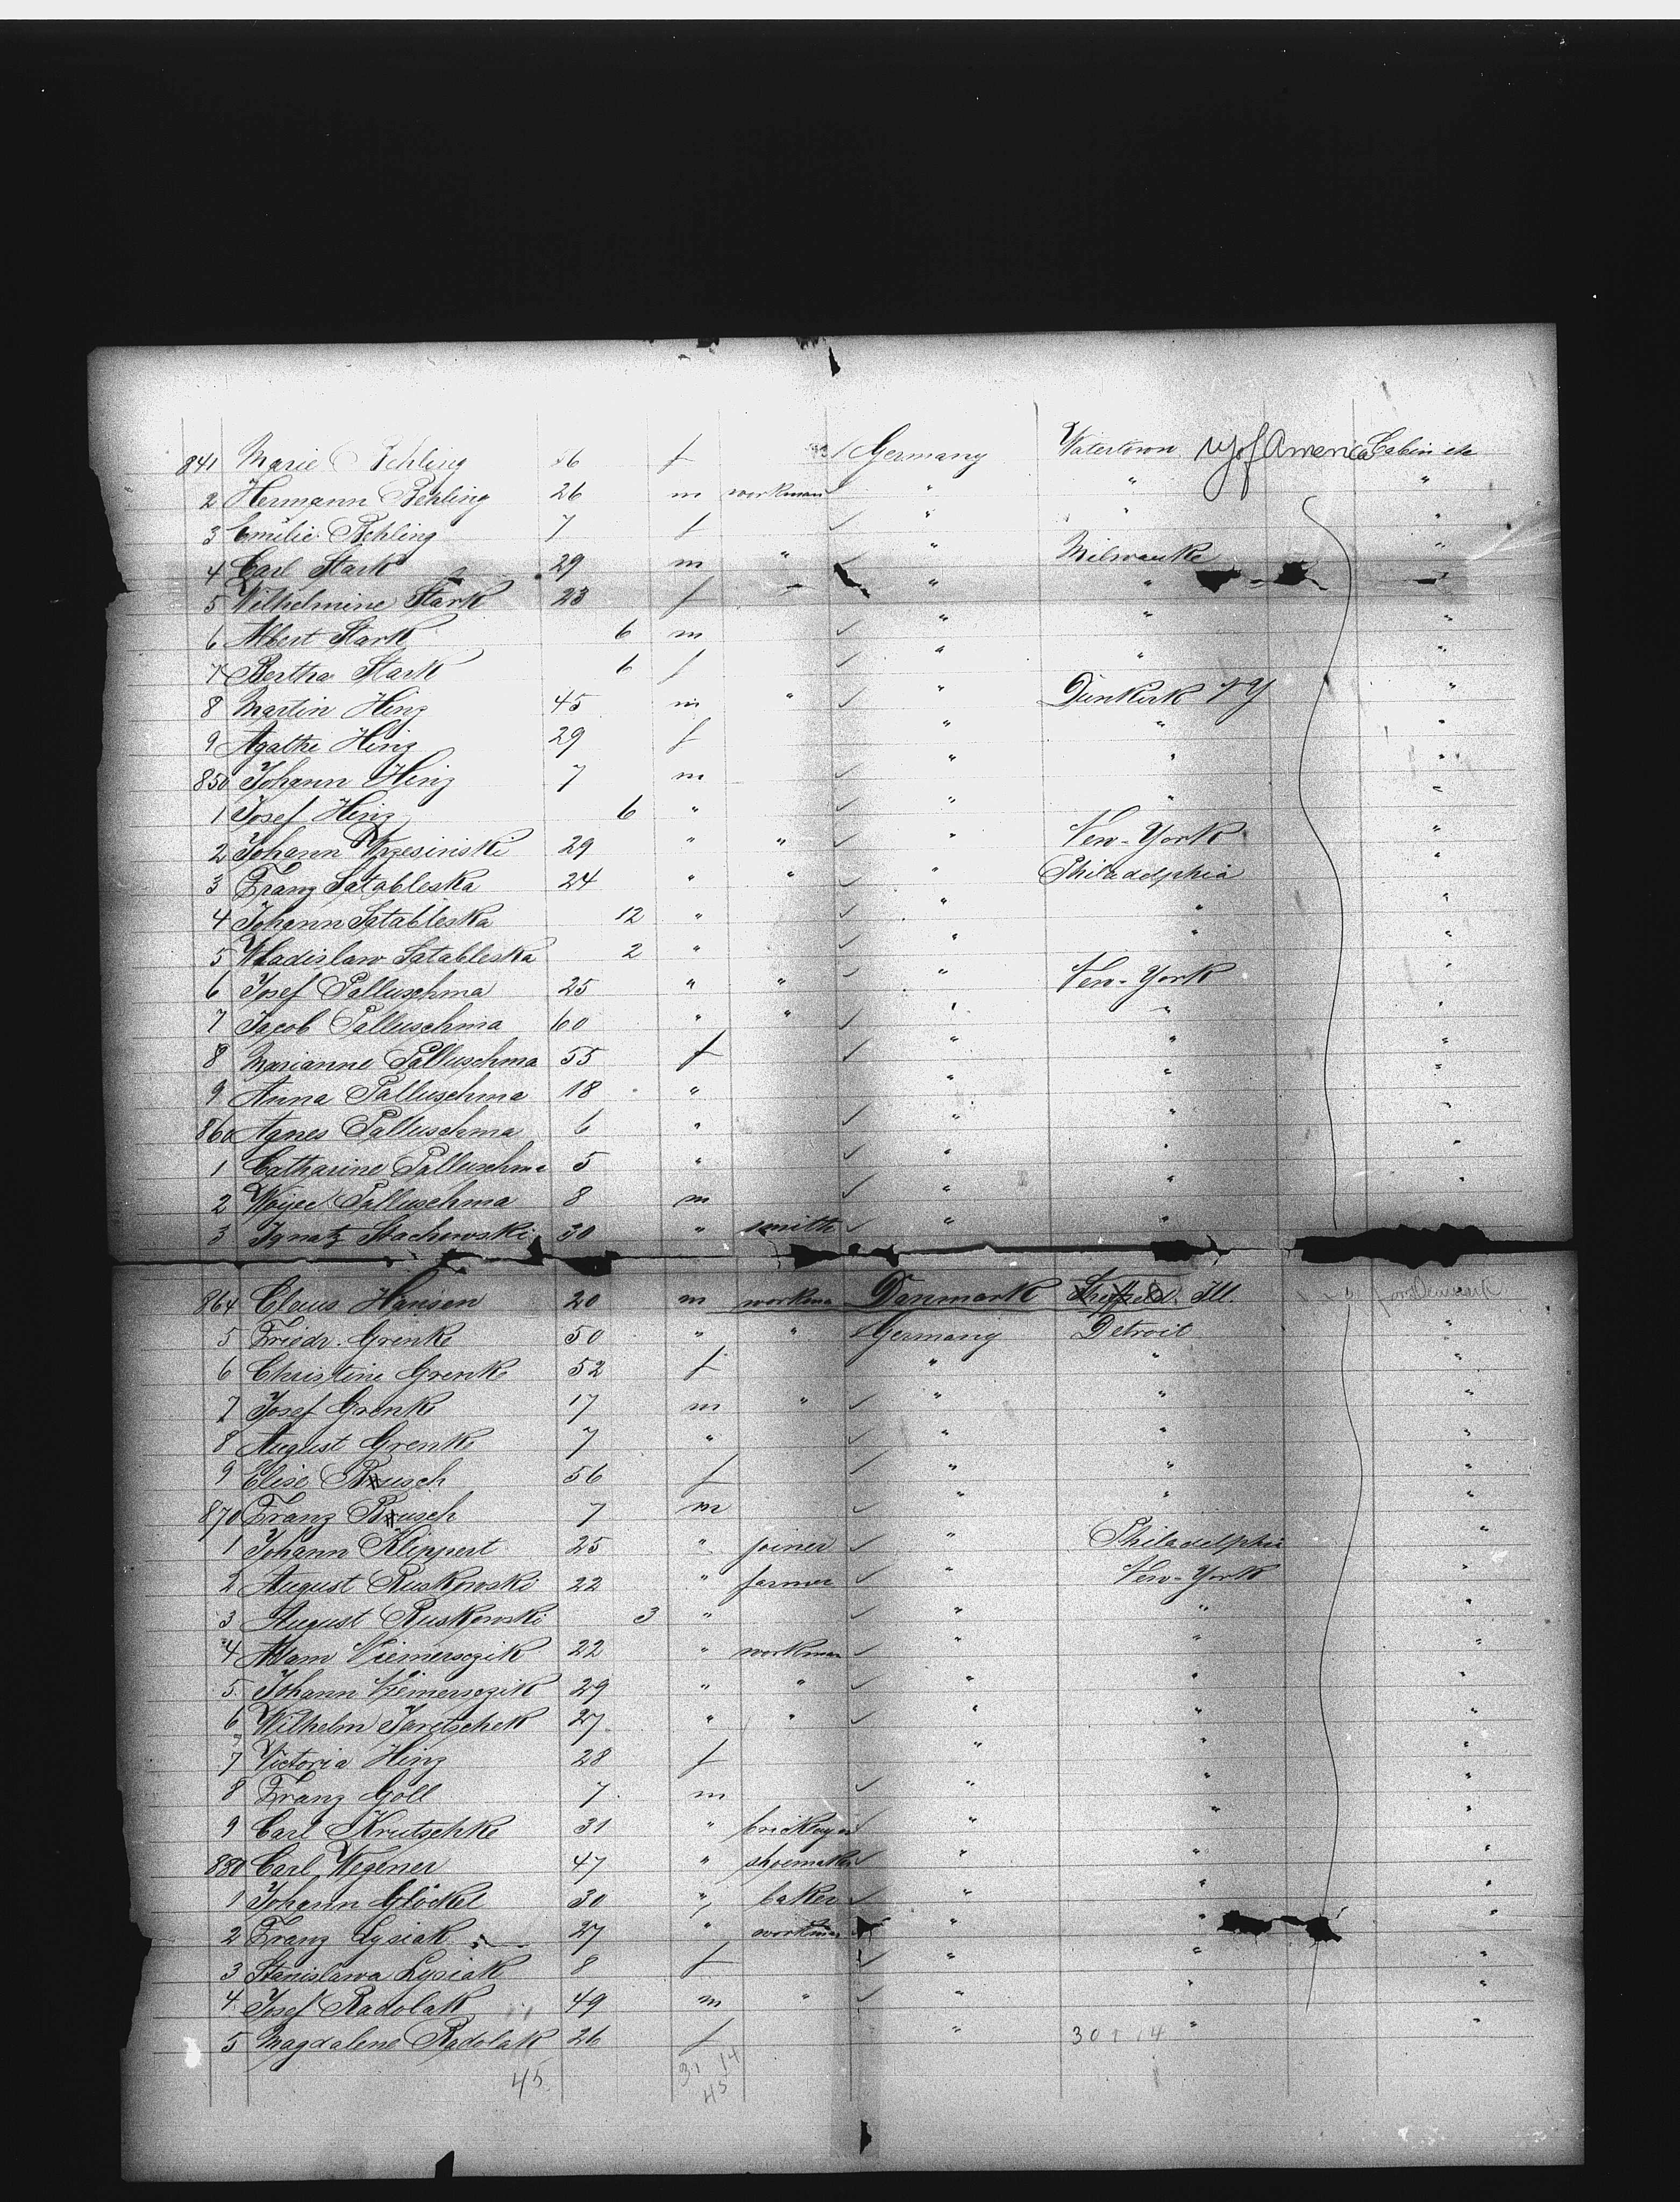 841 Marie Behling 26 f Germany Watertown U.S. of America Cabin etc
2 Hermann Behling 26 m workman " " "
3 Emilie Behling 7 f " " "
4 Carl Stark 29 m " " Milwauke "
5 Wilhelmine Stark 23 f " "
6 Albert Stark 6 m " " "
7 Bertha Stark 6 f " " "
8 Martin Hinz 45 m " " Dunkirk NY "
9 Agathe Hinz 29 f " " "
850 Johann Hinz 7 m " " "
1 Josef Hinz 6 " " " "
2 Johann Wrzesinski 29 " " " New-York "
3 Franz Satableska 24 " " " Philadelphia "
4 Johann Satableska 12 " " " "
5 Wladislaw Satableska 2 " " " "
6 Josef Palluschma 25 " " " New-York "
7 Jacob Palluschma 60 " " " " "
8 Marianne Palluschma 55 f " " "
9 Anna Palluschma 18 " " " "
860 Agnes Palluschma 6 " " " "
1 Catharine Palluschma 5 " " " "
2 Wojec Palluschma 8 m " " "
3 Ignatz Stachowski 30 " smith " "
864 Claus Hansen 20 m workma Danmark Ill.
5 Friedr. Grenke 50 " " Germany Detroit "
6 Christine Grenke 52 f " " "
7 Josef Grenke 17 m " " " "
8 August Grenke 7 " " " "
9 Elise Busch 56 f " " "
870 Franz Busch 7 m " "
1 Johann Klippert 25 " joiner " Philadelphia "
2 August Ruskowski 22 " farmer " New-York "
3 August Ruskowski 3 " " " "
4 Adam Niemersczik 22 " workman " " "
5 Johann Niemersczik 29 " " " " "
6 Wilhelm Jaretschek 27 " " " " "
7 Victoria Hinz 28 f " " "
8 Franz Goll 7 m " " "
9 Carl Krutschke 31 " bricklayer " " "
880 Carl Wegener 47 " shoemaker " " "
1 Johann Glöckel 30 " baker " " "
2 Franz Lysiak 27 " workman " " "
3 Stanislawa Lysiak 8 f " " "
4 Josef Radolak 49 m " " " "
5 Magdalene Radolak 26 f " " "
45 31 14 30 + 14
45